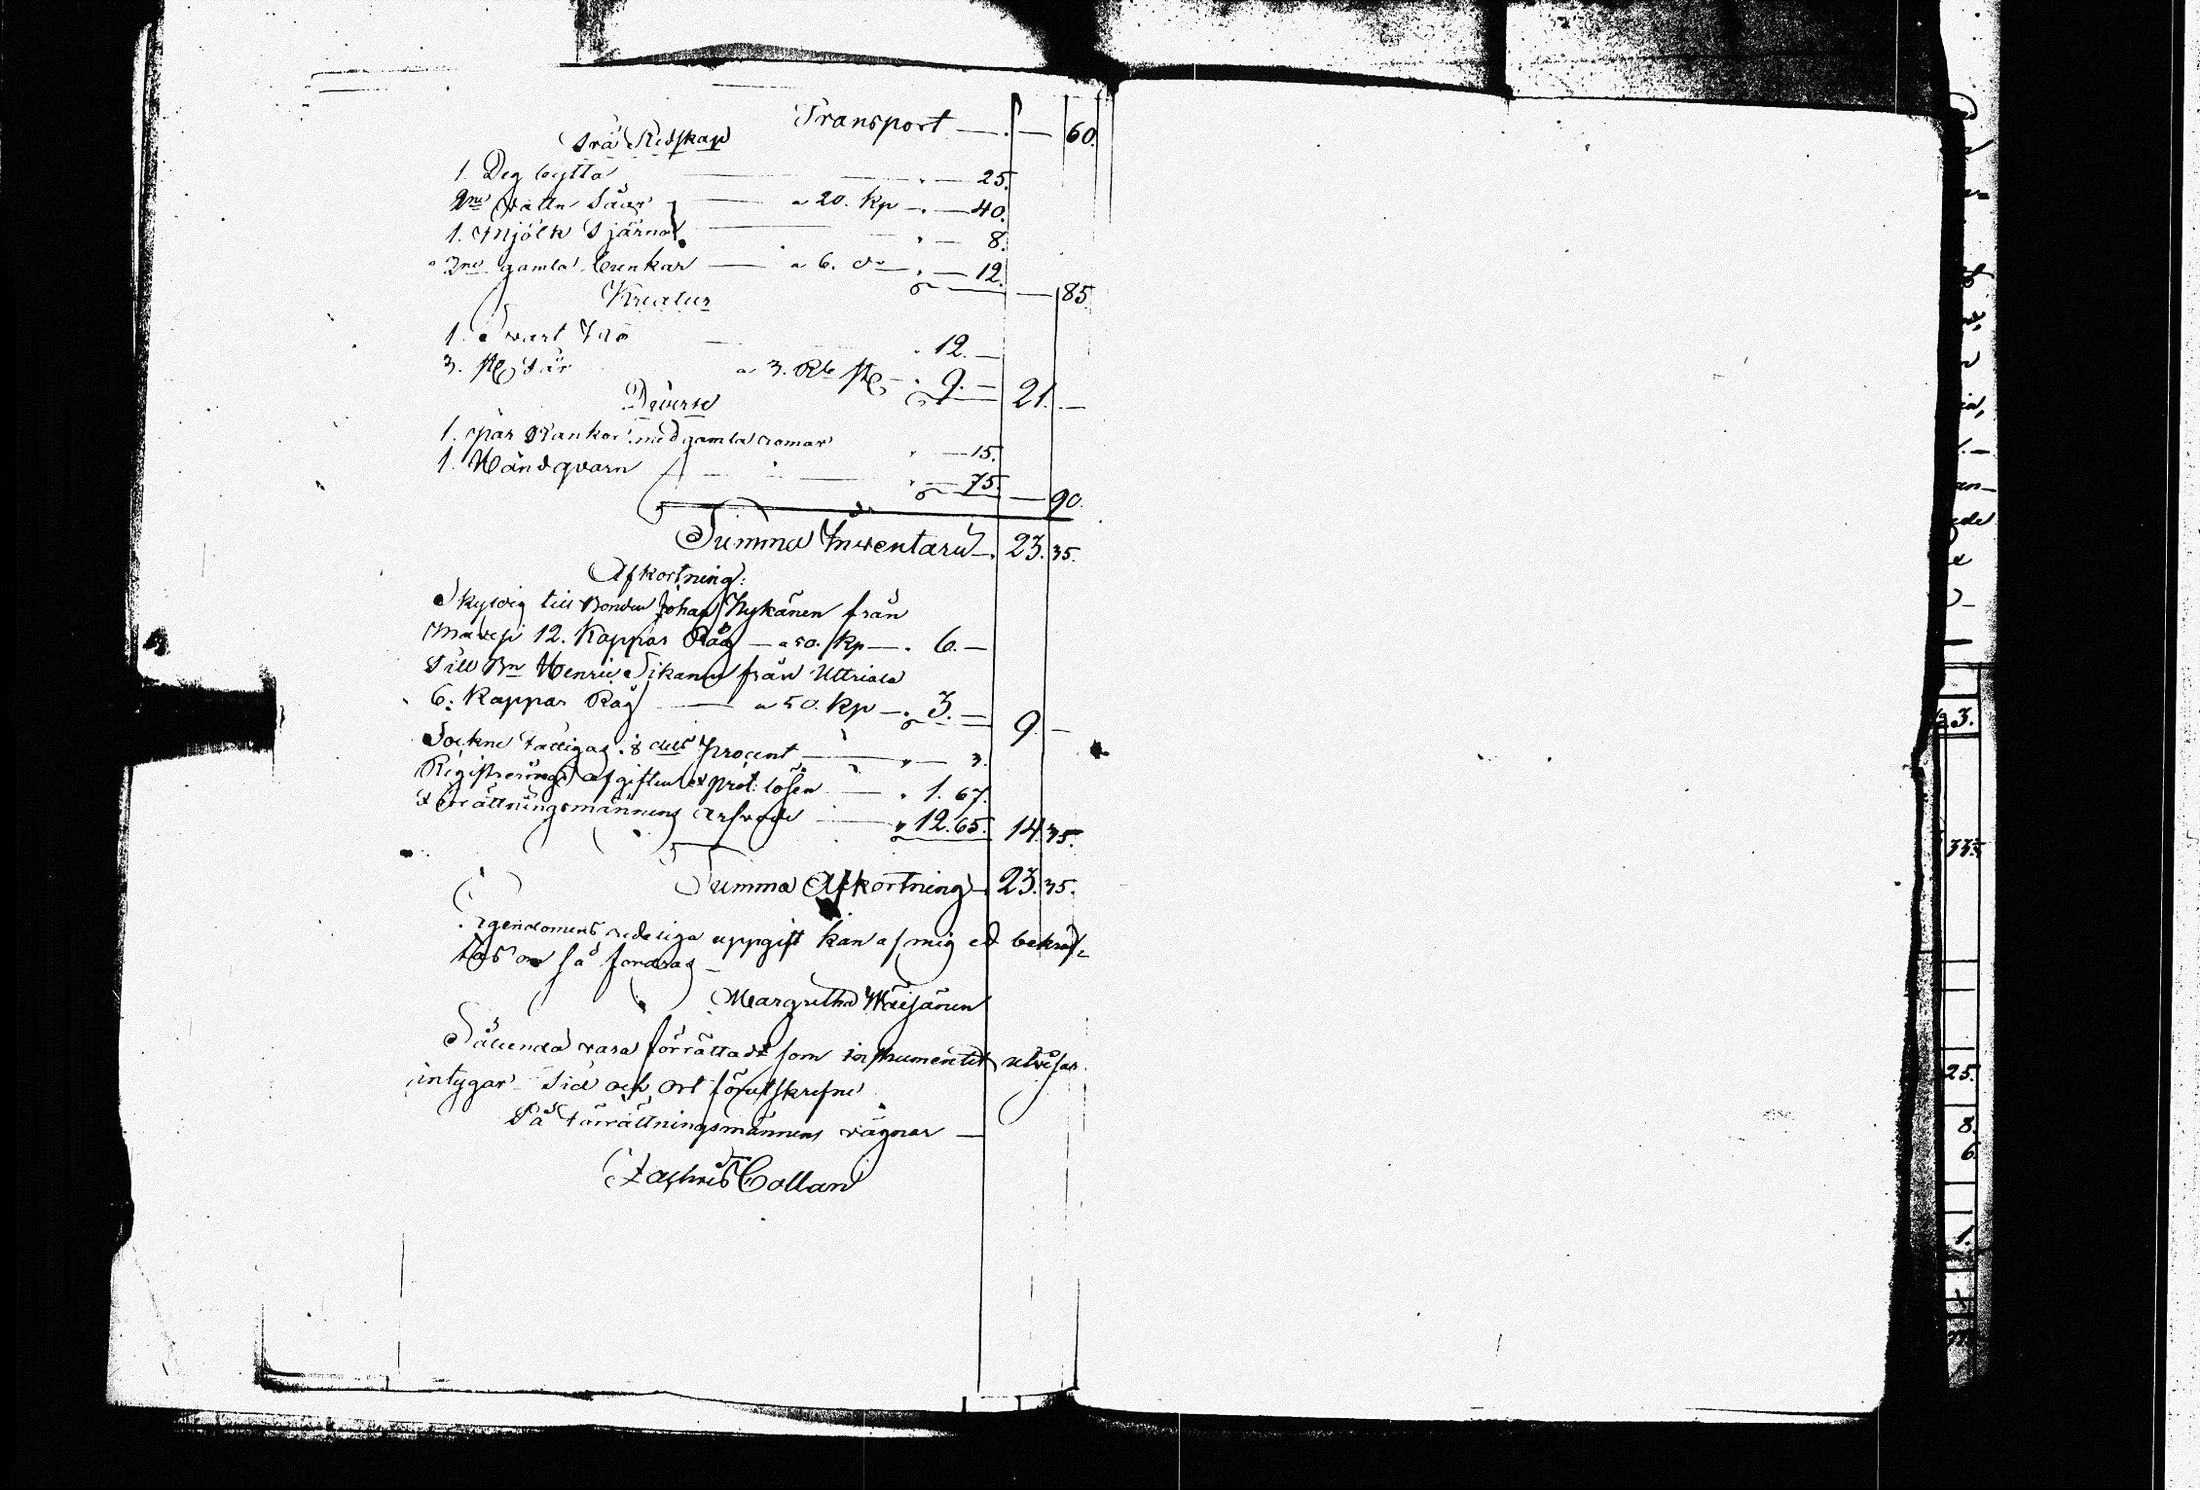 Transport — . — 60.
Trä Redskap
1. Deg bytta — . — 25.
2ne Vattn Såar — a 20. kp — . — 40.
1. Mjölk Tjärna — . — 8.
2ne gamla Bunkar — a 6. do — . — 12.
— 85.
Kreatur
1. Swart Ko — . 12. —
3. st. Får a 3. Rb st. — . 9. — 21. —
Diverse
1. par Rankor med gamla romar . — 15.
1. Handqvarn — . — 75. — 90.
Summa Inventarii — . 23. 35.
Afkortning:
Skyldig till Bonden Johan Nykänen från
12. Kappar Råg — a 50. kp — . 6. —
Till Bn Henric Sikanen från Uttriala
6. Kappar Råg — a 50. kp — . 3. — 9. —
Sockne fattigas 1/8 dels procent — " — 3.
Registrerings afgiften et prot. lösen — . 1. 67.
Förrättningsmännens arfvode — " 12. 65. 14. 35.
Summa Afkortning — 23. 35.
Egendomens redeliga uppgift kan af mig ed bekräf-
tas om så fordras —
Margretha Väisänen
Sålunda vara förrättadt som instrumentet utvisar
intygar Tid och Ort förutskrefne
På Förrättningsmännens vägnar —
Zachris Collan
3.
335.
25.
8.
6.
1.